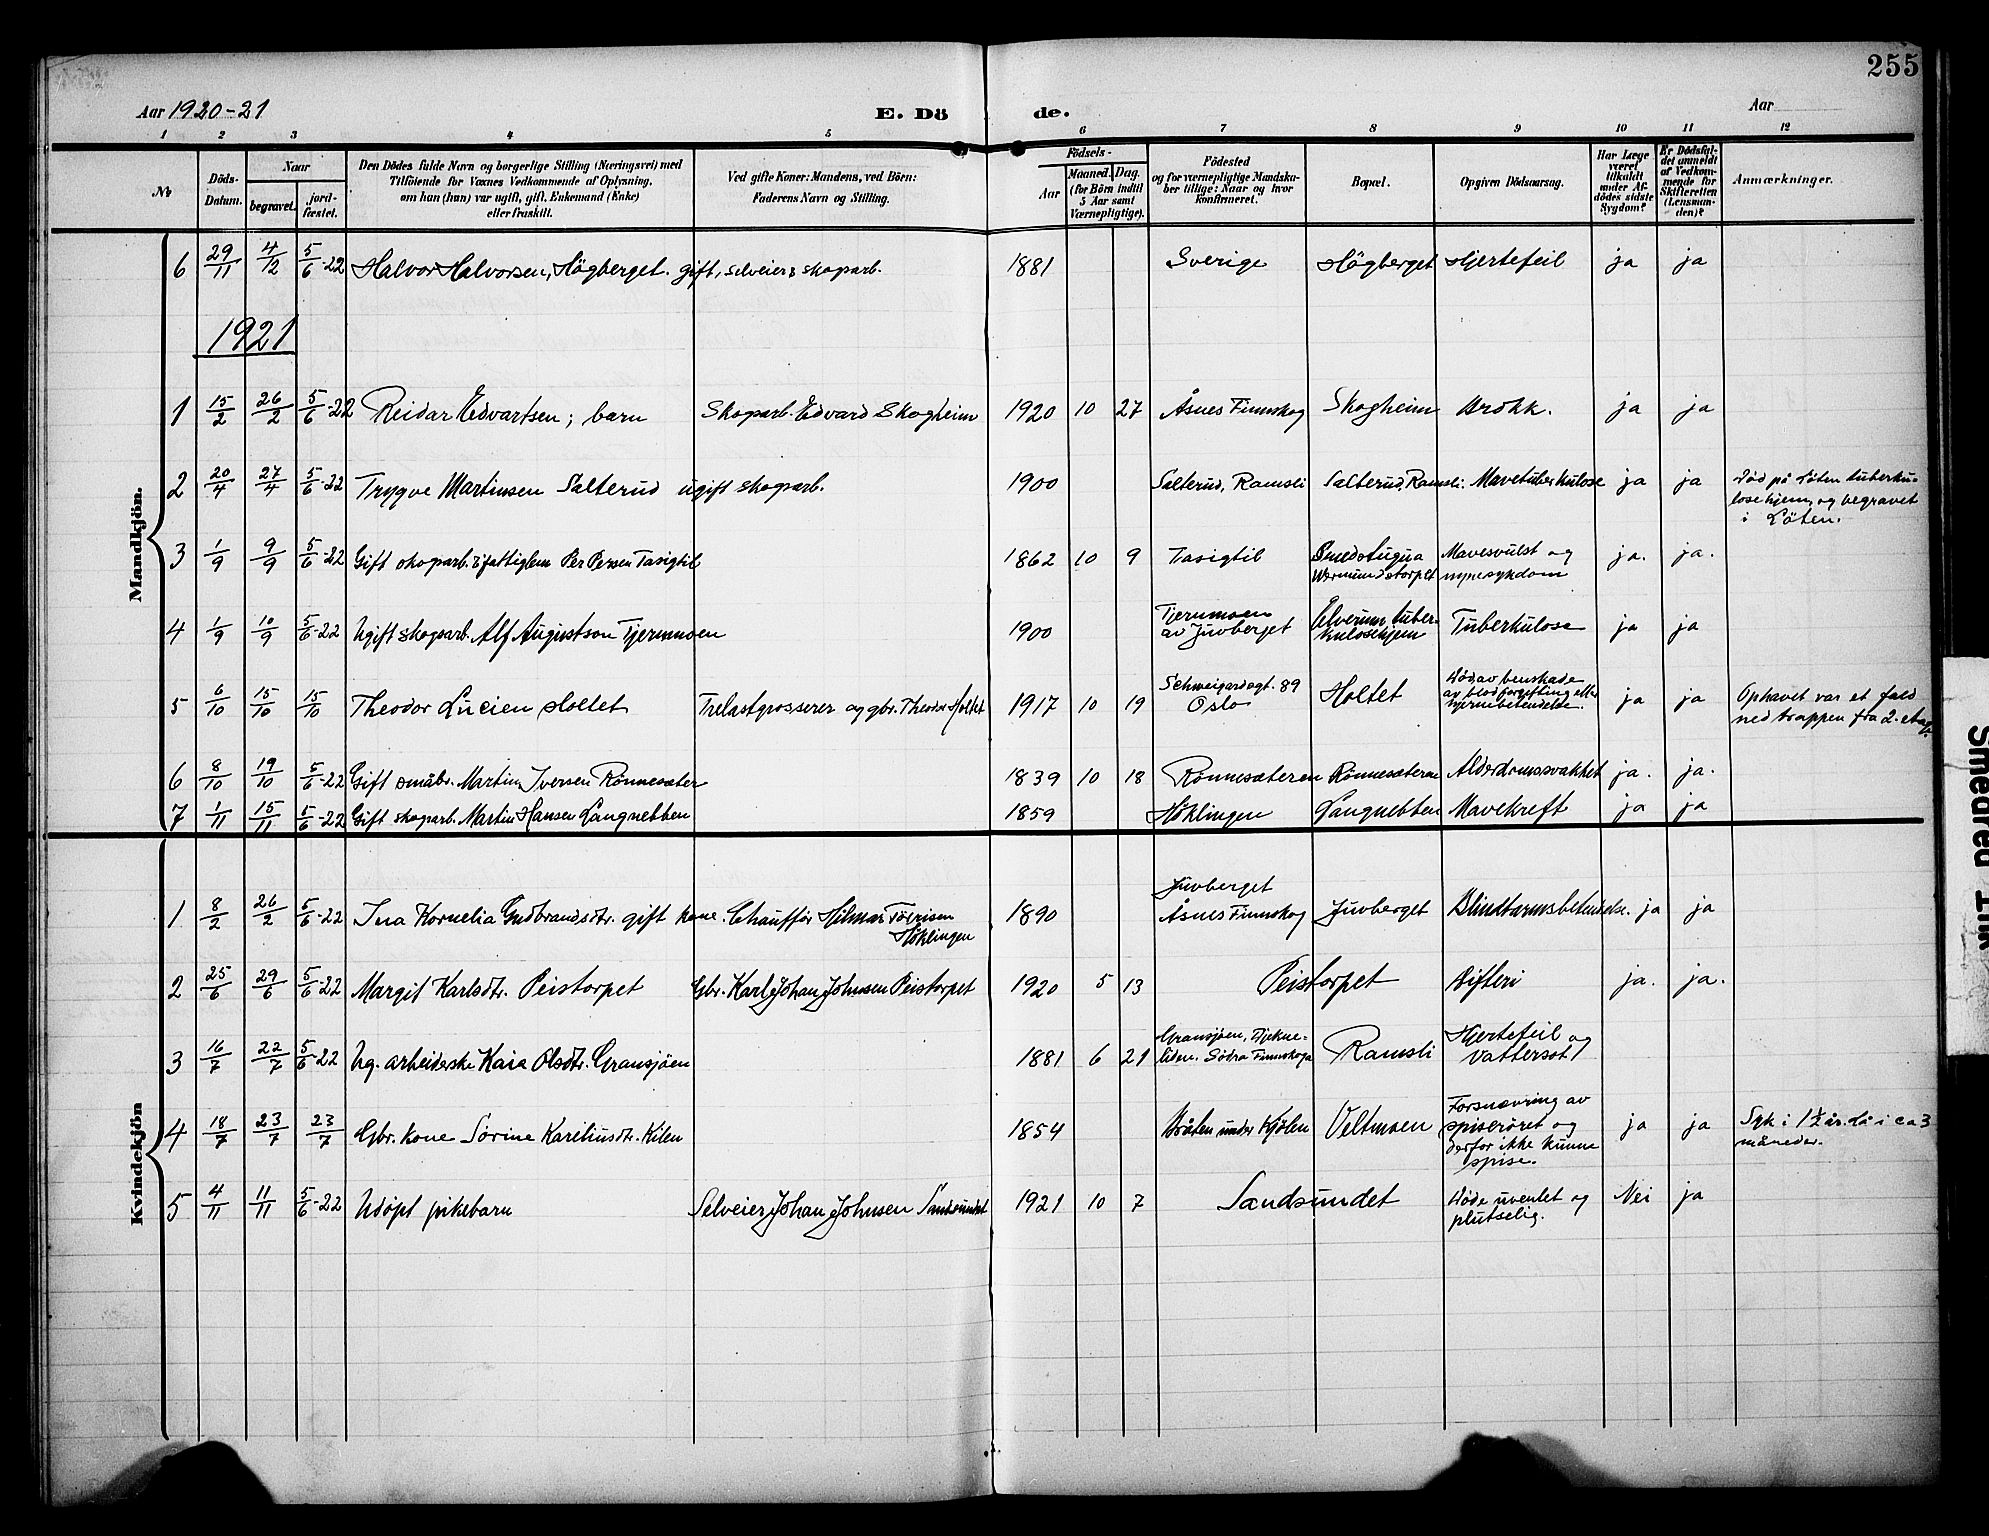 255
Aar 1920-21 E. Dö de. Aar
1 2 3 4 5 6 7 8 9 10 11 12
No
Döds-Datum.
Naar
begravet.
jord-fæstet.
Den Dödes fulde Navn og borgerlige Stilling (Næringsvei) med
Tilföiende for Voxnes Vedkommende af Oplysning,
om han (hun) var ugift, gift, Enkemand (Enke)
eller fraskilt.
Ved gifte Koner: Mandens, ved Börn:
Faderens Navn og Stilling.
Födsels-
Aar
Maaned. Dag.
(for Börn indtil
5 Aar samt
Værnepligtige).
Födested
og for værnepligtige Mandska-
ber tillige: Naar og hvor
konfirmeret.
Bopæl.
Opgiven Dödsaarsag.
Har Læge
været
tilkaldt
under Af-
dödes sidste
Sygdom?
Er Dödsfal-
det anmeldt
af Vedkom-
mende for
Skifteretten
(Lensman-
den)?
Anmærkninger.
Mandkjön.
6 29/11 4/12 5/6-22 Halvor Halvorsen, Högberget. gift, selveier & skogarb. 1881 Sverige Högberget Hjertefeil ja ja
1921
1 15/2 26/2 5/6-22 Reidar Edvartsen; barn Skogarb. Edvard Skogheim 1920 10 27 Åsnes Finnskog Skogheim Brokk. ja ja
2 20/4 27/4 5/6-22 Trygve Martinsen Salterud ugift skogarb. 1900 Salterud, Ramsli Salterud, Ramsli. Mavetuberkulose ja ja Död på Löten tuberku-
losehjem, og begravet
i Löten.
3 1/9 9/9 5/6-22 Gift skogarb. & fattiglem Per Persen Tasigtil 1862 10 9 Tasigtil Smedstugua
Wermundstorpet Mavesvulst og
nyresykdom ja. ja.
4 1/9 10/9 5/6-22 Ugift skogsarb. Alf Augustson Tjernmoen 1900 Tjernmoen
av Juvberget Elverum tuber-
kulosehjem Tuberkulose ja ja
5 6/10 15/10 15/10 Theodor Lucien Holtet Trelastgrosserer og gbr. Theodor Holtet 1917 10 19 Schweigardsgt. 89
Oslo Holtet Död av benskade
og blodforgiftning eller
hjernebetendelse. ja ja Ophavet var et fald
ned trappen fra 2. etag.
6 8/10 19/10 5/6-22 Gift småbr. Martin Iversen Rönnesæter 1839 10 18 Rönnesæteren Rönnesæteren Alderdomssvakhet ja. ja.
7 1/11 15/11 5/6-22 Gift skogarb. Martin Hansen Langnebben 1859 Höklingen Langnebben Mavekreft ja ja
Kvindekjön
1 8/2 26/2 5/6-22 Ina Kornelia Gudbrandsdtr. gift kone. Chaufför Hilmar
Höklingen 1890 Juvberget
Åsnes Finnskog Juvberget Blindtarmsbetendelse. ja ja
2 25/6 29/6 5/6-22 Margit Karlsdtr. Peistorpet Gbr. Karl Johan Johnsen Peistorpet 1920 5 13 Peistorpet Difteri ja. ja.
3 16/7 22/7 5/6-22 Ug. arbeiderske Kaia Olsdtr. Gransjöen 1881 6 21 Gransjöen,
Södra Finnskoga Ramsli Hjertefeil og
Vattersot
4 18/7 23/7 23/7 Gbr. kone Sorine Kareliusdtr. Kilen 1854 Bråten under Kjölen Veltmoen Forsnævring av
spiseröret og
derfor ikke kunne
spise. ja ja Syk i 1½ år. Lå i ca 3
måneder.
5 4/11 11/11 5/6-22 Udöpt pikebarn Selveier Johan Johnsen Sandsundet 1921 10 7 Sandsundet Döde uventet og
plutselig. Nei ja
Smeared Ink